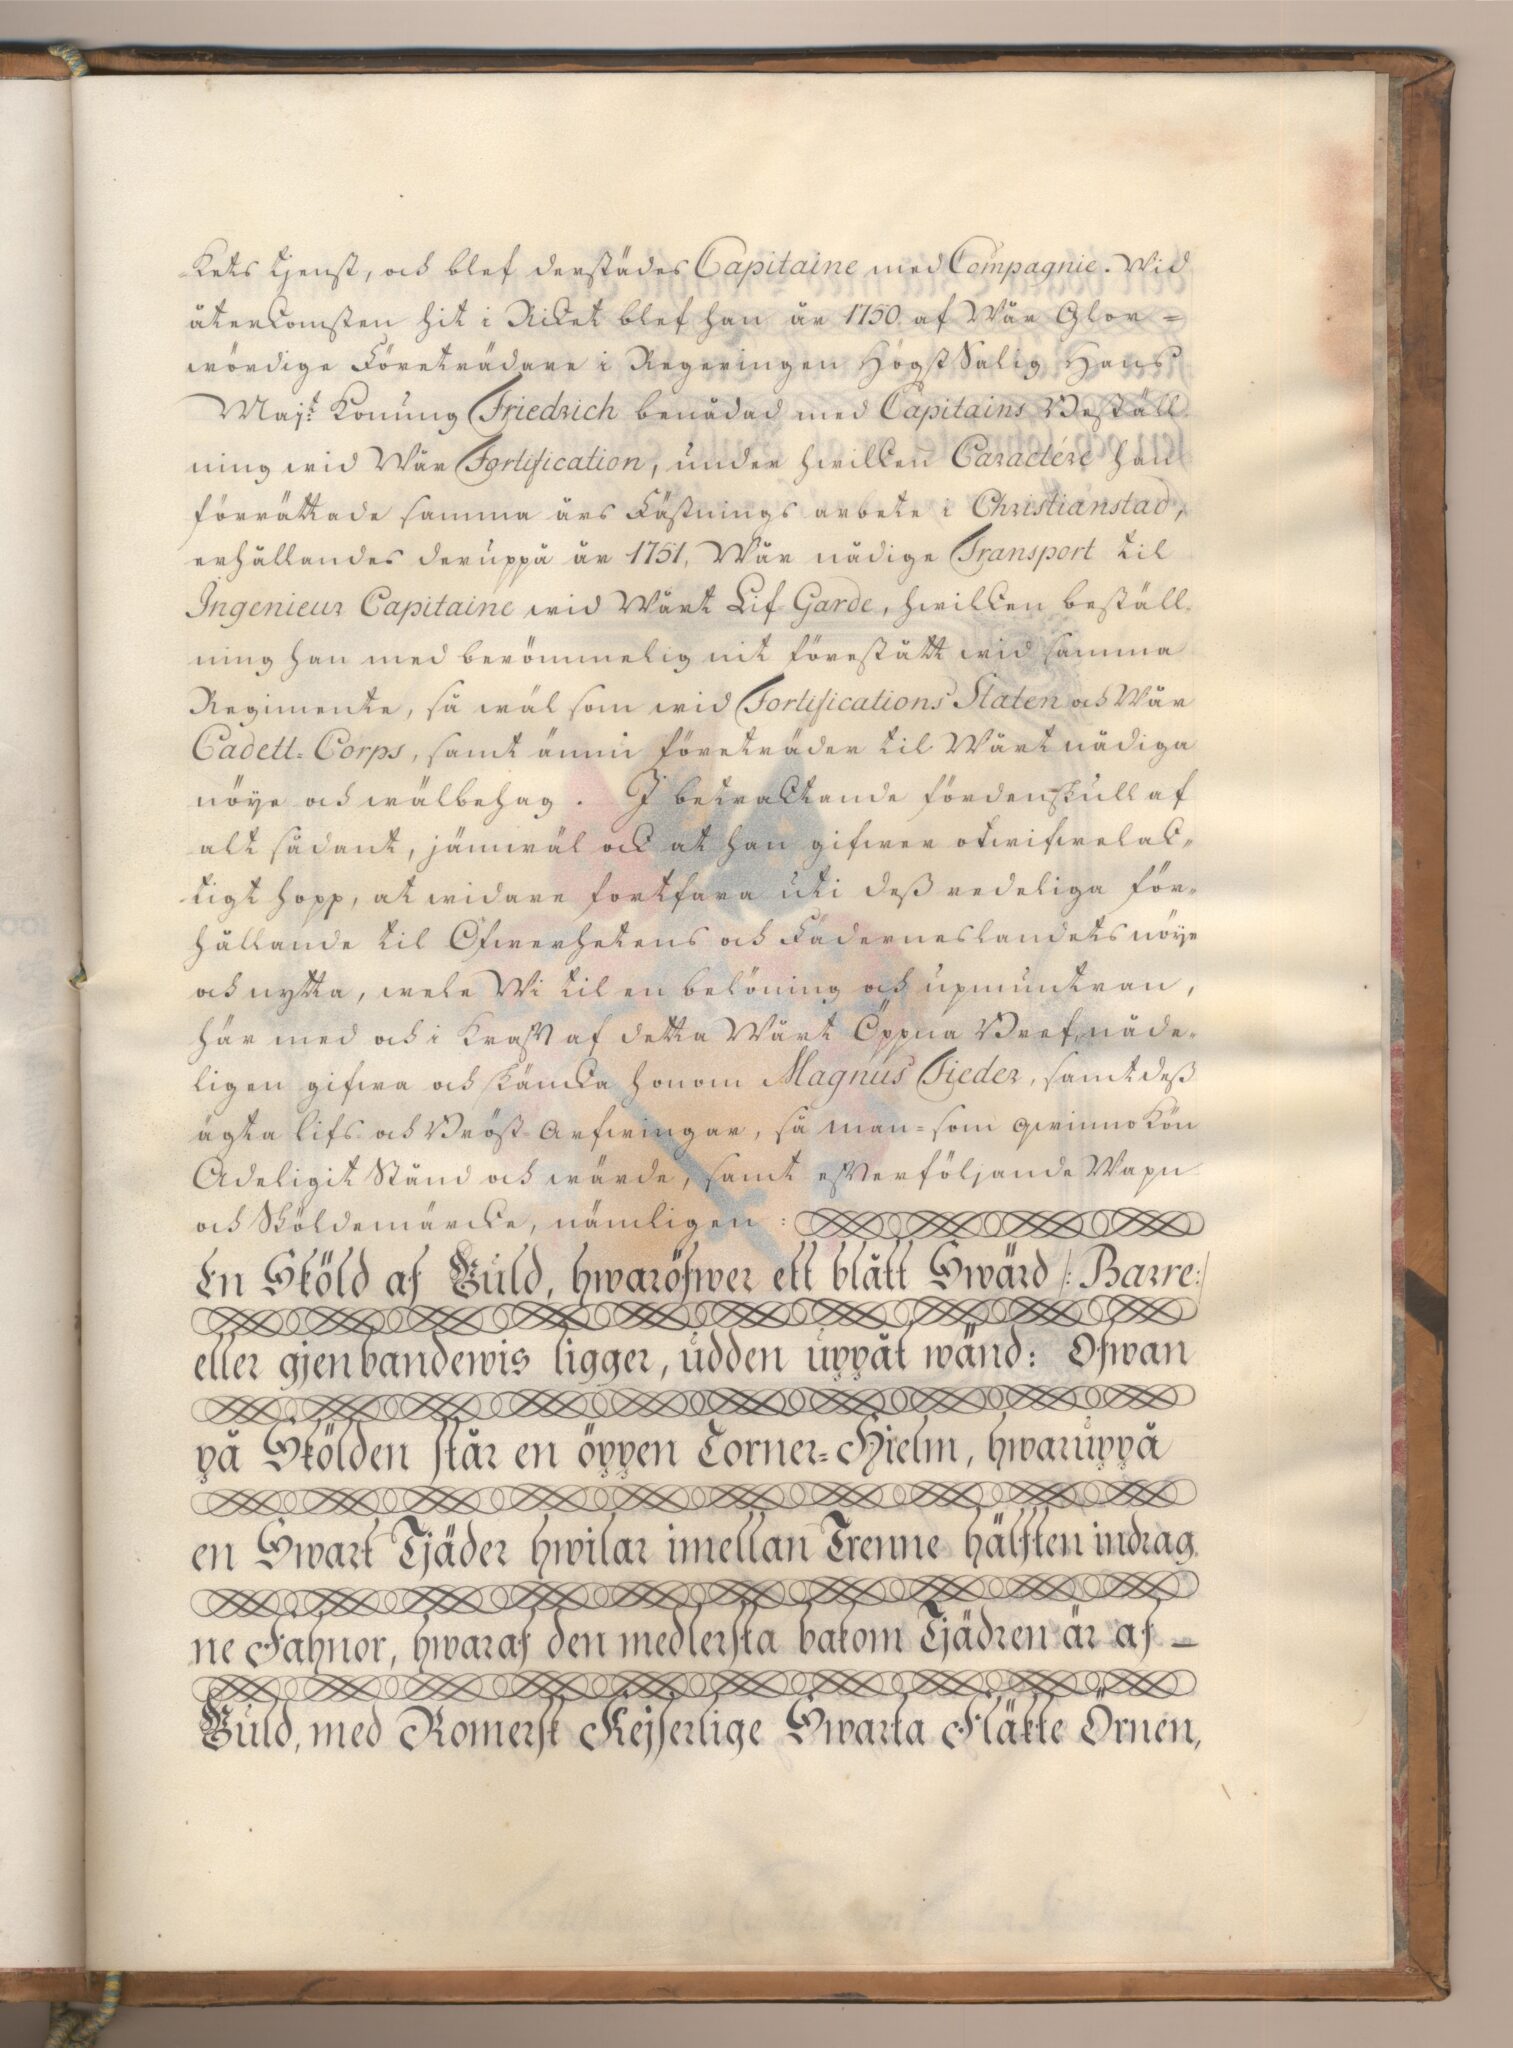 -kets tjenst, och blef derstädes Capitaine med Compagnie. Wid
återkomsten hit i Riket blef han år 1750. af Wår Glor-
wördige Företrädare i Regeringen Högst Salig Hans
Maj:t Konung Friedrich benådad med Capitains Beställ-
ning wid Wår Fortification, under hwilken Caractére han
förrättade samma års Fästnings arbete i Christianstad,
erhållandes deruppå år 1751. Wår nådige Transport til
Ingenieur Capitaine wid Wårt Lif-Garde, hwilken beställ-
ning han med berömmelig nit förestått wid samma
Regimente, så wäl som wid Fortifications Staten och Wår
Cadett-Corps, samt ännu företräder til Wårt nådiga
nöye och wälbehag. I betracktande fördenskull af
alt sådant, jämwäl ock at han gifwer otwifwelack-
tigt hopp, at widare fortfara uti deß redeliga för-
hållande til Öfwerhetens och Fäderneslandets nöye
och nytta, wele Wi til en belöning och upmuntran,
här med och i kraft af detta Wårt Öppna Bref, nåde-
ligen gifwa och skäncka honom Magnus Tieder, samt deß
ägta lifs- och Bröst-Arfwingar, så man- som qwinno Kön
Adeligit Stånd och wärde, samt efterföljande Wapn
och Sköldemärcke, nämligen:
En Sköld af Guld, hwaröfwer ett blått Swärd /: Barre:/
eller gjenbandewis ligger, udden uppåt wänd: Ofwan
på Skölden står en öppen Torner-Hielm, hwaruppå
en Swart Tjäder hwilar imellan Trenne hälften indrag-
ne Fahnor, hwaraf den medlersta bakom Tjädren är af -
Guld, med Romersk Kejserlige Swarta Fläkte Örnen,